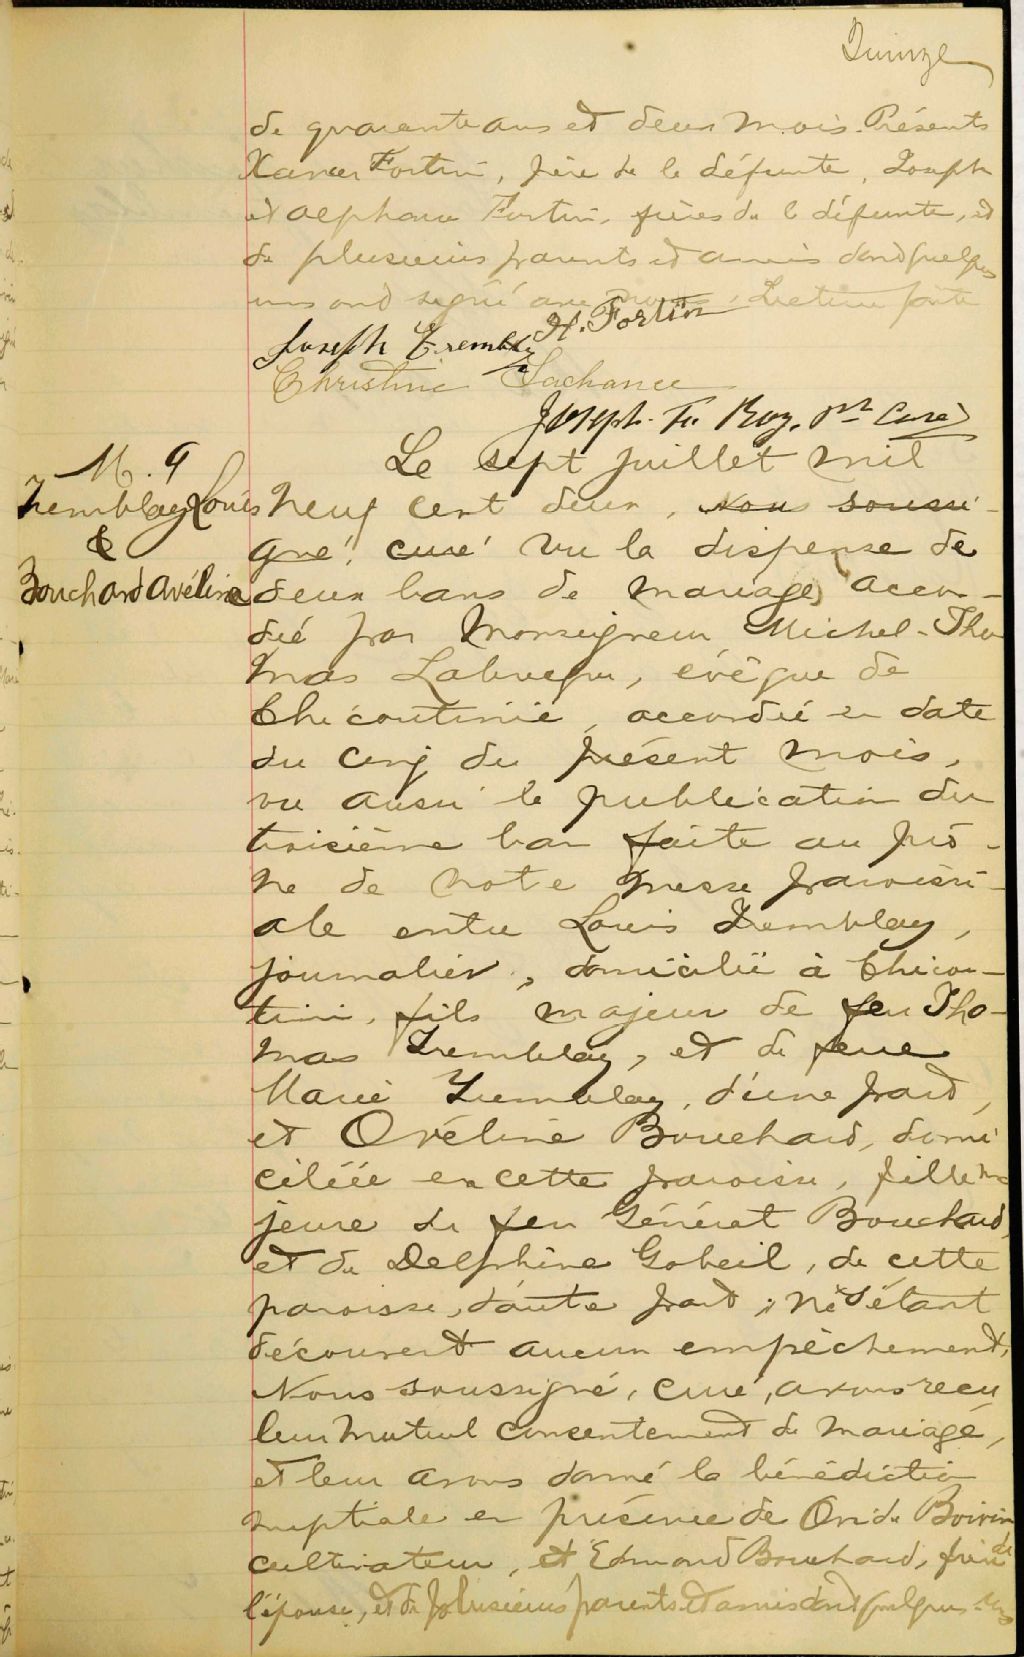 Quinze
de quarante ans et deux mois. Présents
Xavier Fortin, père de la défunte, Joseph
et Alphonse Fortin, frères de la défunte, et
de plusieurs parents et amis dont quelques
uns ont signé avec nous. Lecture faite
H. Fortin
Joseph Tremblay
Christine Lachance
Joseph. Fr. Roy, Ptre Curé
M. 9
Tremblay Louis
&
Bouchard Avéline
Le sept juillet mil
neuf cent deux, nous soussi-
gné, curé vu la dispense de
deux bans de mariage accor-
dée par Monseigneur Michel-Tho
mas Labrecque, évêque de
Chicoutimi, accordée en date
du cinq du présent mois,
vu aussi la publication du
troisième ban faite au prô-
ne de notre messe paroissi-
ale entre Louis Tremblay,
journalier, domicilié à Chicou-
timi, fils majeur de feu Tho-
mas Tremblay, et de feue
Marie Tremblay, d'une part,
et Ovéline Bouchard, domi
ciliée en cette paroisse, fille ma
jeure de feu Général Bouchard,
et de Delphine Gobeil, de cette
paroisse, d'autre part; ne s'étant
découvert aucun empêchement,
Nous soussigné, curé, avons reçu
leur mutuel consentement de mariage,
et leur avons donné la bénédiction
nuptiale en présence de Ovide Boivin
cultivateur, et Edmond Bouchard, frère de
l'épouse, et de plusieurs parents et amis dont quelques uns